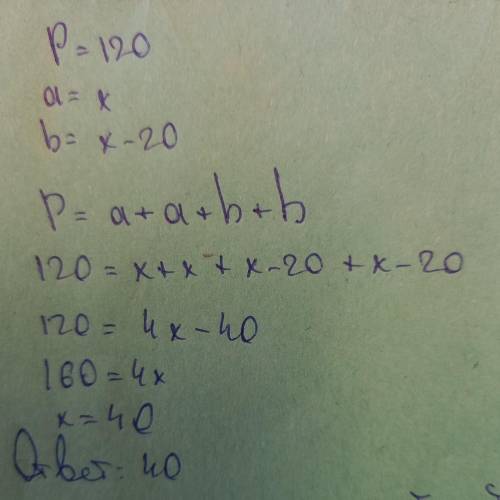 P = 120
a = x
b = x - 20
P = a + a + b + b
120 = x + x + x - 20 + x - 20
120 = 4x - 40
160 = 4x
x = 40
Ответ: 40